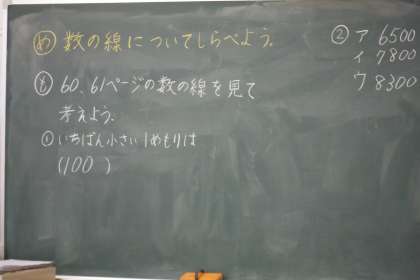 め 数の線についてしらべよう。
も 60、61ページの数の線を見て
考えよう。
① いちばん小さい1めもりは
(100 )
② ア 6500
イ 7800
ウ 8300